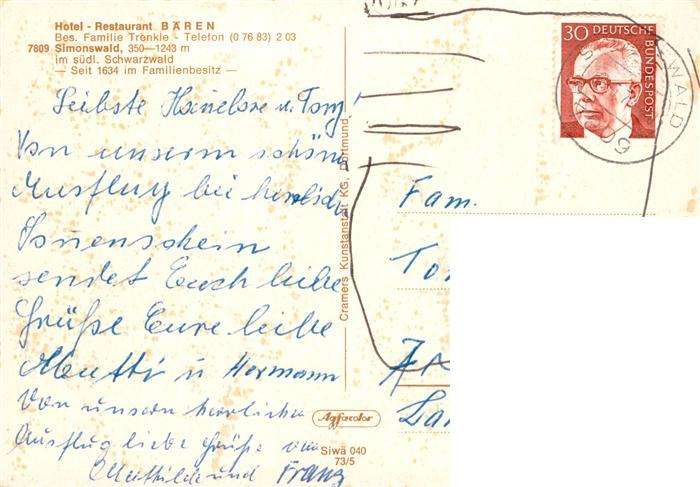 Hotel - Restaurant BÄREN
Bes. Familie Trenkle - Telefon (0 76 83) 2 03
7809 Simonswald, 350—1243 m
im südl. Schwarzwald
— Seit 1634 im Familienbesitz —
Liebste Hanelore u. Tony!
Von unserm schönen
Ausflug bei herrlich
Sonnenschein
sendet Euch liebe
Grüße Eure liebe
Mutti u Hermann
Von unsern herrlichen
Ausflug liebe Grüße von
Mathilde und Franz
Cramers Kunstanstalt KG, Dortmund
Agfacolor
Siwä 040
73/5
30 DEUTSCHE
BUNDESPOST
Fam.